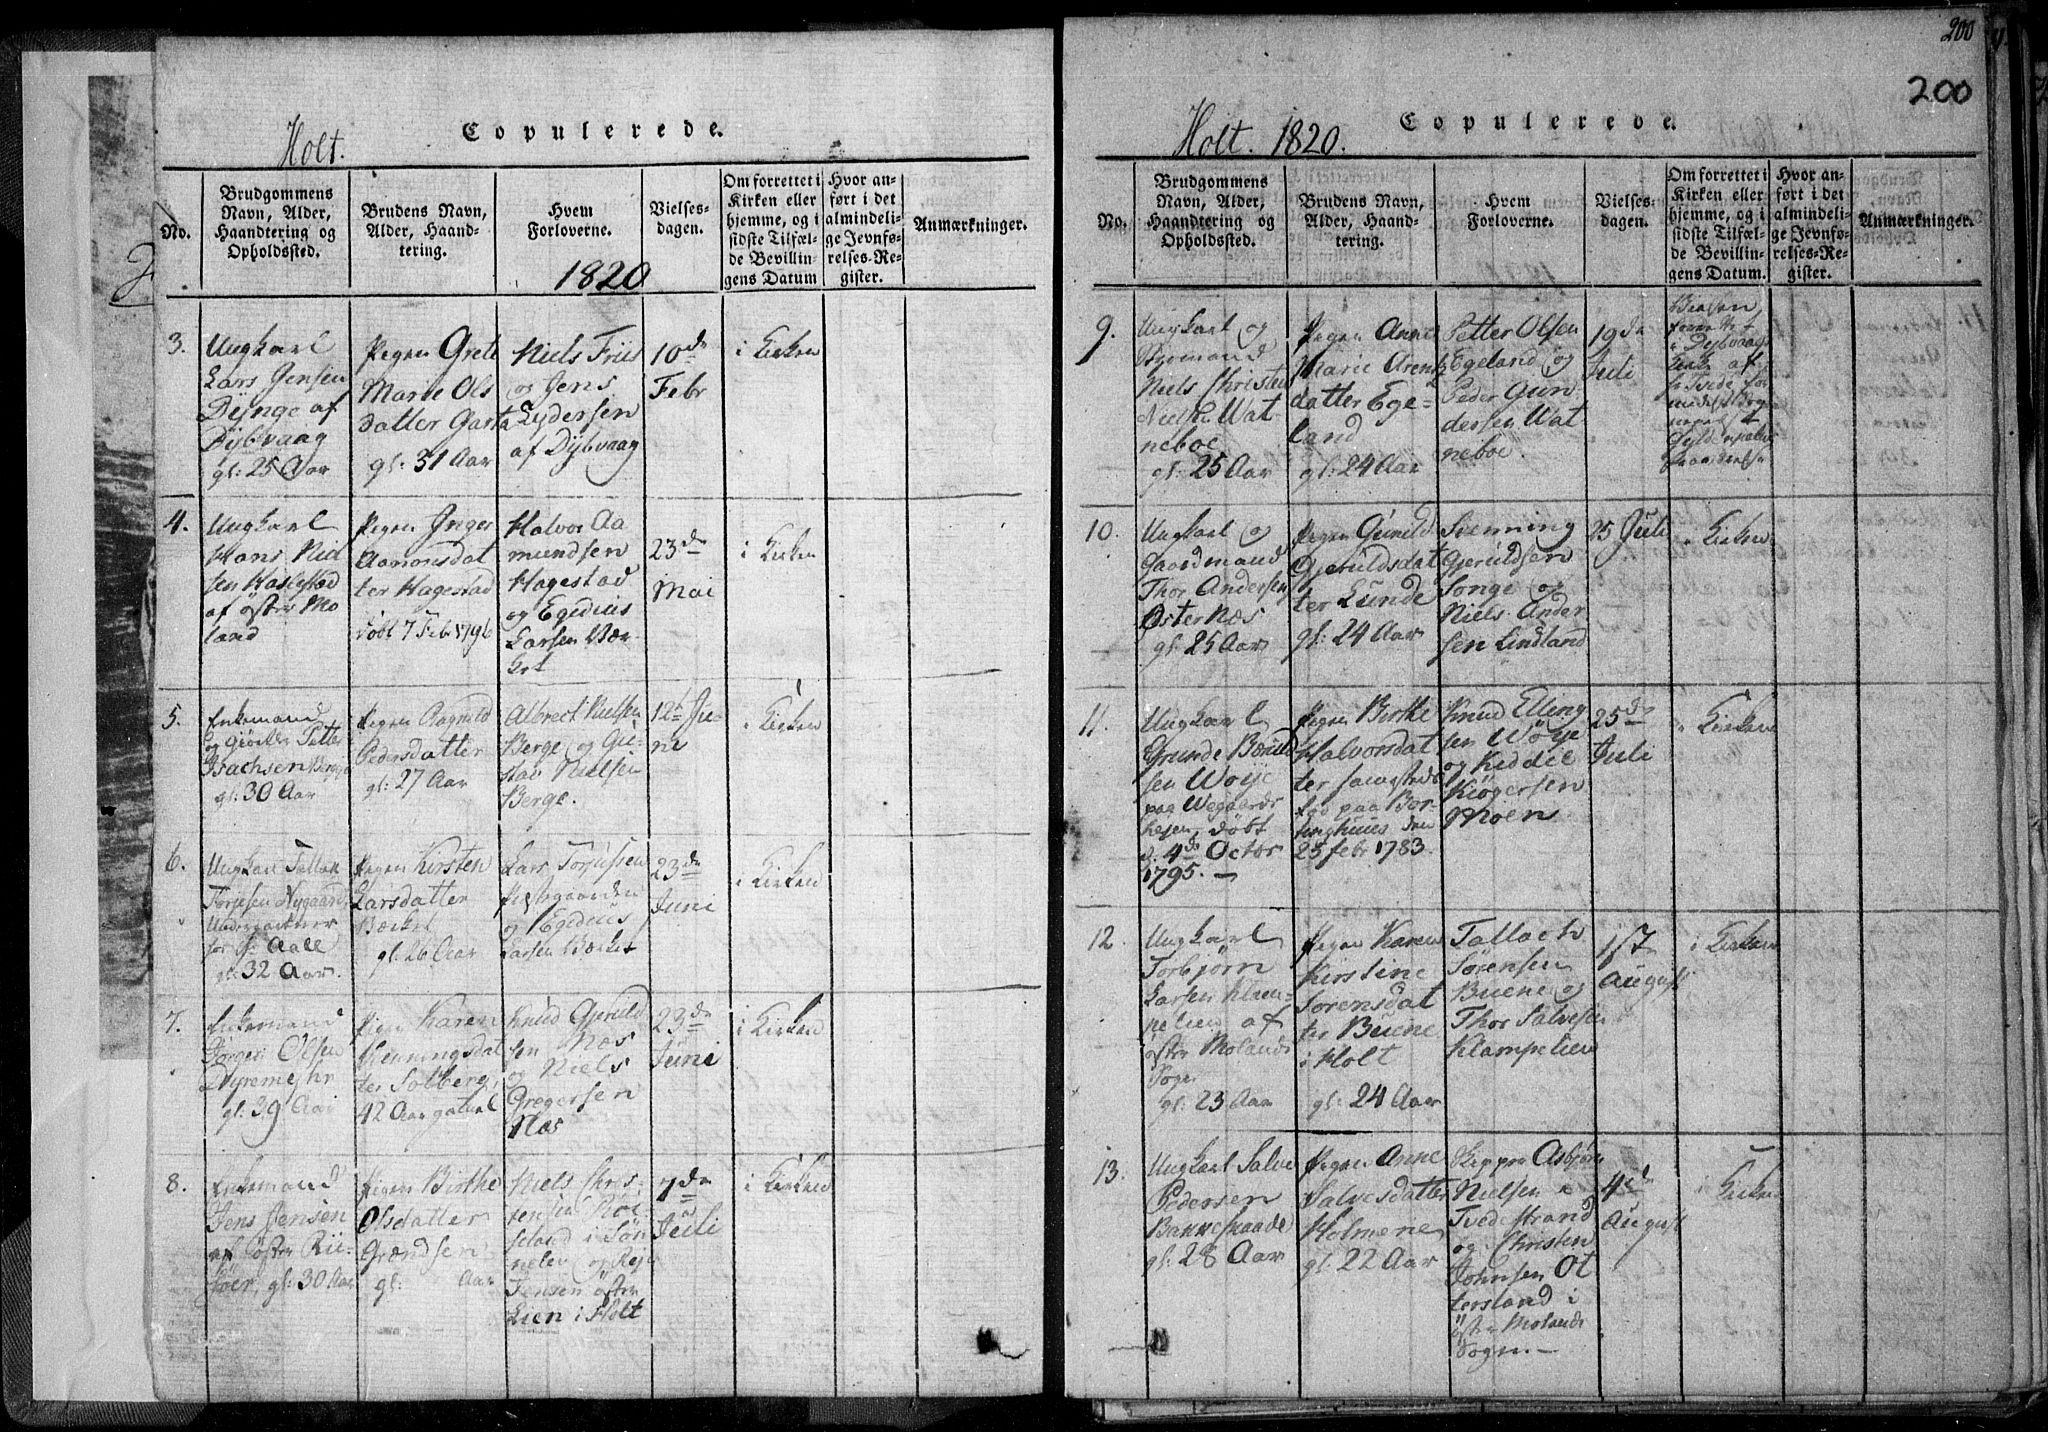 Holt.
Copulerede.
No.
Brudgommens
Navn, Alder,
Haandtering og
Opholdssted.
Brudens Navn,
Alder, Haand-
tering.
Hvem
Forloverne.
1820
Vielses-
dagen.
Om forrettet i
Kirken eller
hjemme, og i
sidste Tilfæl-
de Bevillin-
gens Datum
Hvor an-
ført i det
almindeli-
ge Jevnfø-
relses-Re-
gister.
Anmærkninger.
3.
Ungkarl
Lars Jensen
Dynge af
Dybvaag
gl: 25 Aar
Pigen Grete
Marie Ols
Datter Garta
gl: 31 Aar
Niels Friis
og Jens
Lydersen
af Dybvaag
10de
Febr
i Kirken
4.
Ungkarl
Hans Niel
sen Haslestad
af østre Mo
land
Pigen Inger
Aamonsdat
ter Hagestad
døbt 7 Febr 1796
Halvor Aa
mundsen
Hagestad
og Egidius
Larsen Vær
ket
23de
Mai
i Kirken
5.
Enkemand
og Petter
Isachsen Berge
gl: 30 Aar
Pigen Ragnild
Pedersdatter
gl: 27 Aar
Albrect Nielsen
Berge og Gu-
stav Nielsen
Berge.
12t Ju
ni
i Kirken
6.
Ungkarl Tallak
Torjesen Nygaard,
for Aall
gl: 32 Aar.
Pigen Kirsten
Larsdatter
Værket
gl: 26 Aar
Lars Torjussen
Præstgaarden
og Egidius
Larsen Værket
23de
Juni
i Kirken
7.
Enkemand
Jørgen Olsen
Dyremyhr
gl: 39 Aar
Pigen Karen
Henningsdat
ter Solberg,
42 Aar gamel
Knud Gjeruld
sen Næs
og Niels
Gregersen
Næs
23de
Juni
i Kirken
8.
Enkemand
Jens Jensen
af østre Rii-
søer, gl: 30 Aar
Pigen Birthe
Olsdatter
Grændsen
gl: Aar
Niels Chris
tensen Røi
seland i Søn
deløv og
Jensen østre
Lien i Holt
7de
Juli
i Kirken
200
200
Holt. 1820.
Copulerede.
No.
Brudgommens
Navn, Alder,
Haandtering og
Opholdssted.
Brudens Navn,
Alder, Haand-
tering.
Hvem
Forloverne.
Vielses-
dagen.
Om forrettet i
Kirken eller
hjemme, og i
sidste Tilfæl-
de Bevillin-
gens Datum.
Hvor an-
ført i det
almindeli-
ge Jevnfø-
relses-Re-
gister.
Anmærkninger.
9.
Ungkarl og
Bymand
Niels Christen
Nielsen Wat
neboe
gl: 25 Aar
Pigen Anne
Marie Arents
datter Ege-
land
gl: 24 Aar
Petter Olsen
Egeland og
Peder Gun
dersen Wat
neboe.
19de
Juli
i Dybvaag
Kirke af
10.
Ungkarl og
Gaardmand
Thor Andersen
Øster Næs
gl: 25 Aar
Pigen Gunild
Gjeruldsdat
ter Lunde
gl: 24 Aar
Svenning
Gjeruldsen
Songe og
Niels Ander
sen Lindland
25 Juli
i Kirken
11.
Ungkarl
Grunde
sen Woije
paa Wegaards
heien, døbt
d. 4de Octor
1795.
Pigen Birthe
Halvorsdat
ter samesteds
fød paa
den
23 febr 1783.
Knud Elling
sen Woije
og Kiddil
Kiøgersen
Moen
25de
Juli
i Kirken
12.
Ungkarl
Torbjørn
Larsen Klam-
pelien af
østre Molands
Sogn
gl: 23 Aar
Pigen Karen
Kirstine
Sørensdat
ter Buene
i Holt
gl: 24 Aar
Tallach
Sørensen
Buene og
Thor Salvesen
Klampelien
1st
August
i Kirken
13.
Ungkarl Salve
Pedersen
Bakkeskaade
gl: 28 Aar
Pigen Anne
Salvesdatter
Holmene
gl: 22 Aar
Skipper Asbjørn
Nielsen i
Tvedestrand
og Christen
Johnsen Ot
tersland i
østre Molands
Sogn.
4de
August
i Kirken